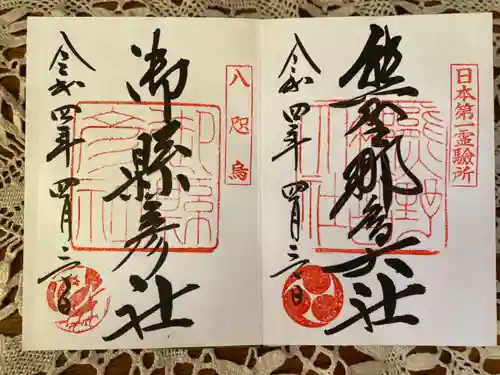 日本第一霊驗所
熊野那智大社
令和四年四月三十日
八咫烏
御縣彦社
令和四年四月三十日